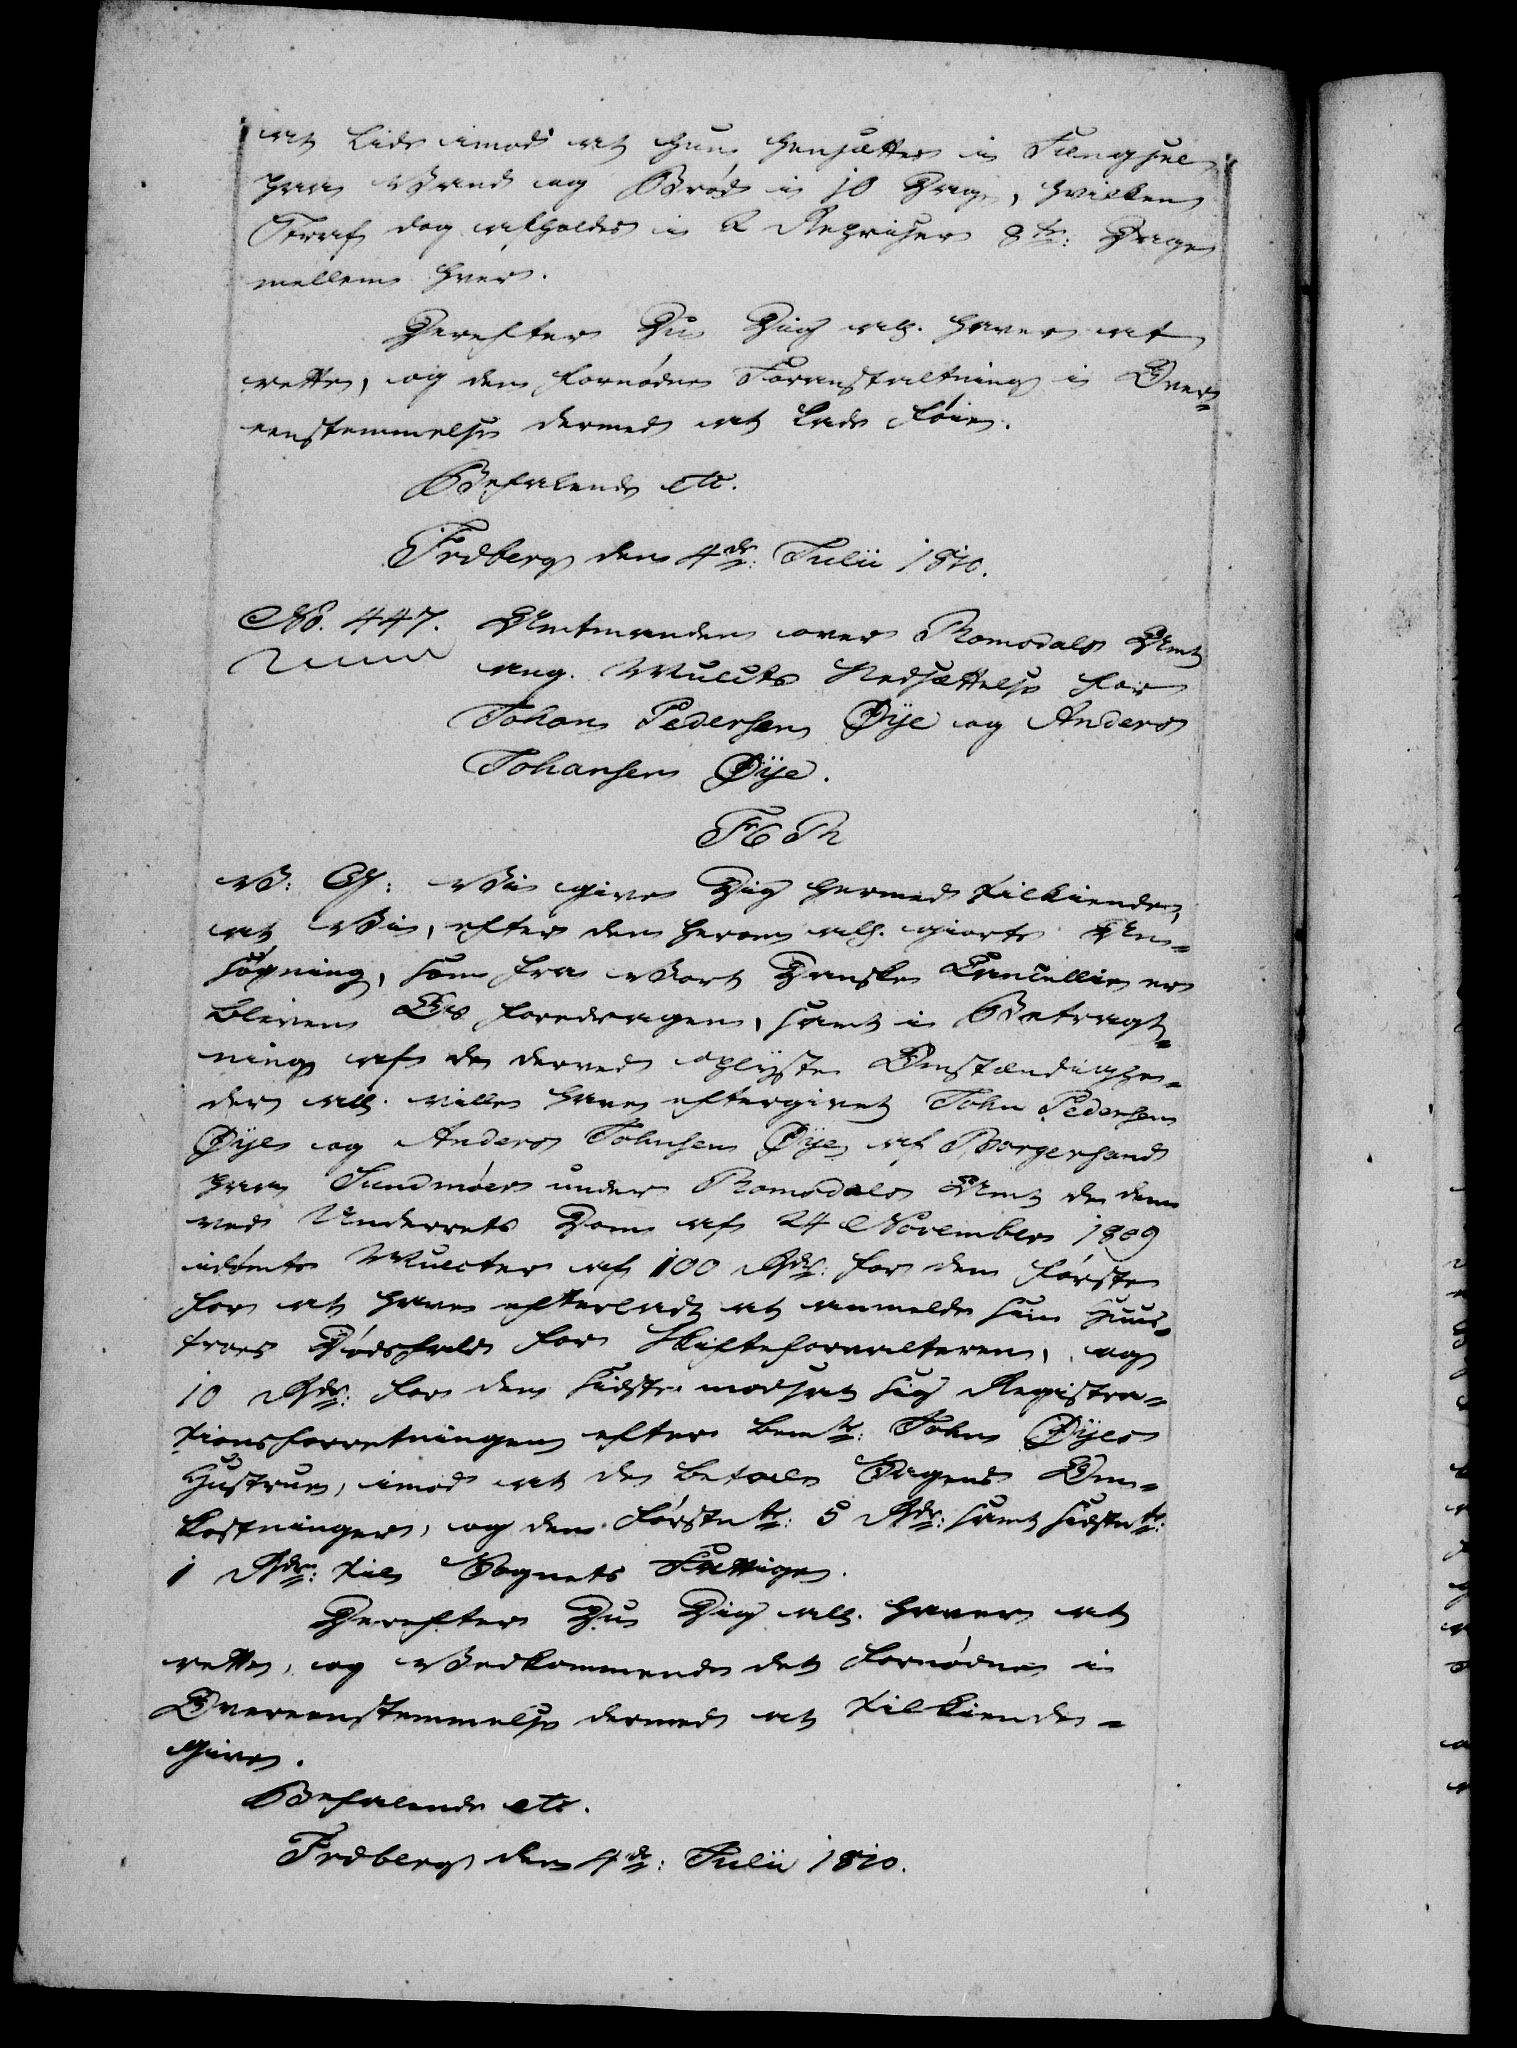 at lide imod at hun hensættes i Fængsel
paa Vand og Brød i 10 Dage, hvilken
Straf dog afholdes i 2 Repriser 8te: Dage
mellem hver.
Derefter Du Dig all. haver at
rette, og den fornødne Foranstaltning i Over-
eensstemmelse dermed at lade føie.
Befalende etc.
Frdberg den 4de: Julii 1810.
No. 447. Amtmanden over Romsdals Amt
ang. Mulcts Nedsættelse for
Johan Pedersen Øÿe og Anders
Johansen Øÿe.
F6 R
V: G: Vi give Dig hermed tilkiende,
at Vi, efter den herom all. giorte An-
søgning, som fra Vort Danske Cancellie er
bleven Os foredragen, samt i Betragt-
ning af de derved oplÿste Omstændighe-
der all. ville have eftergivet John Pedersen
Øÿe og Anders Johnsen Øÿe af Borgersund
paa Sundmøer under Romsdals Amt de dem
ved Underrets Dom af 24 November 1809
idømte Mulcter af 100 Rdr: for den første
for at have efterladt at anmelde sin Huus-
troes Dødsfald for Skifteforvalteren, og
10 Rdr: for den sidste modsat sig Registra-
tionsforretningen efter bemte: John Øÿes
Hustrue, imod at de betale Sagens Om-
kostninger, og den førstnte: 5 Rdr: samt sidstnte:
1 Rdr: til Sognets Fattige.
Derefter Du Dig all. haver at
rette, og Vedkommende det fornødne i
Overeensstemmelse dermed at tilkiende-
give.
Befalende etc.
Frdberg den 4de: Julii 1810.